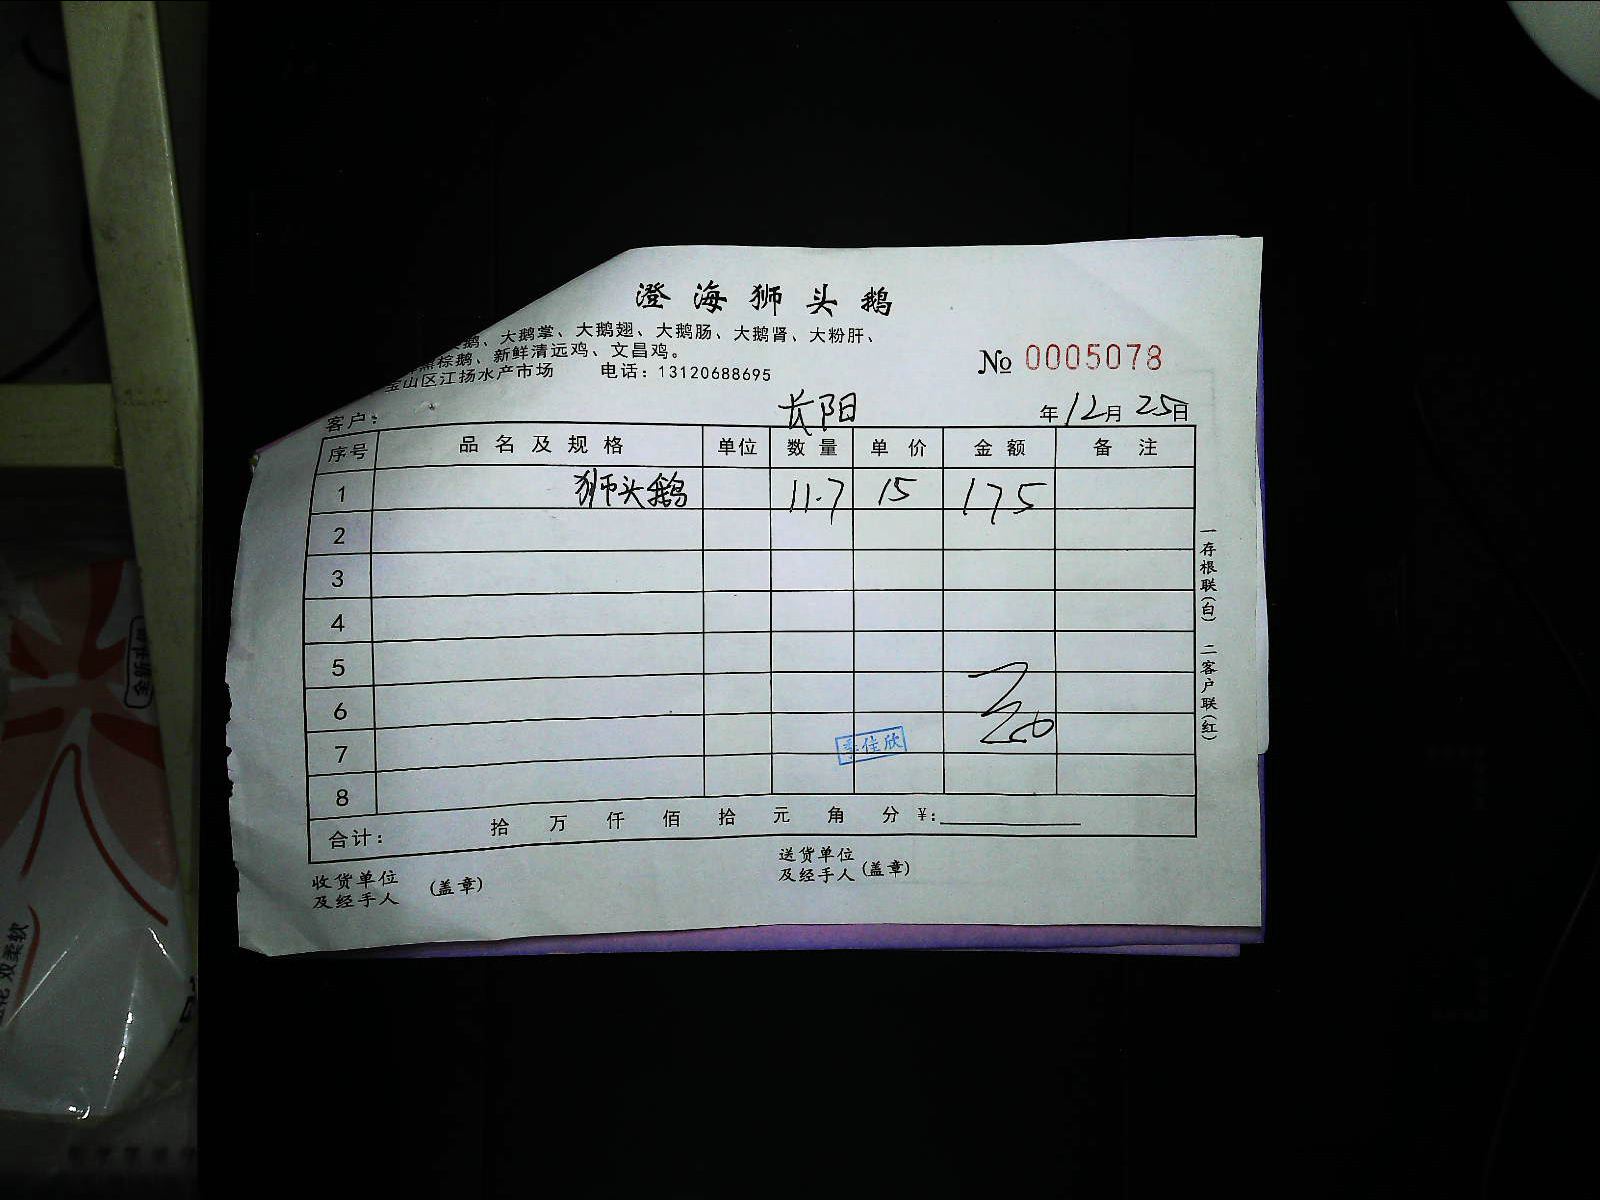 澄海狮头鹅
鹅、大鹅掌、大鹅翅、大鹅肠、大鹅肾、大粉肝、
棕鹅、新鲜清远鸡、文昌鸡。
宝山区江扬水产市场 电话：13120688695
№ 0005078
客户： 长阳 年12月25日
序号 品名及规格 单位 数量 单价 金额 备注
1 狮头鹅 11.7 15 175
2
3
4
5
6
7
8
佳欣
合计： 拾 万 仟 佰 拾 元 角 分 ￥:
收货单位
及经手人 (盖章)
送货单位
及经手人 (盖章)
一存根联(白) 二客户联(红)
双柔软